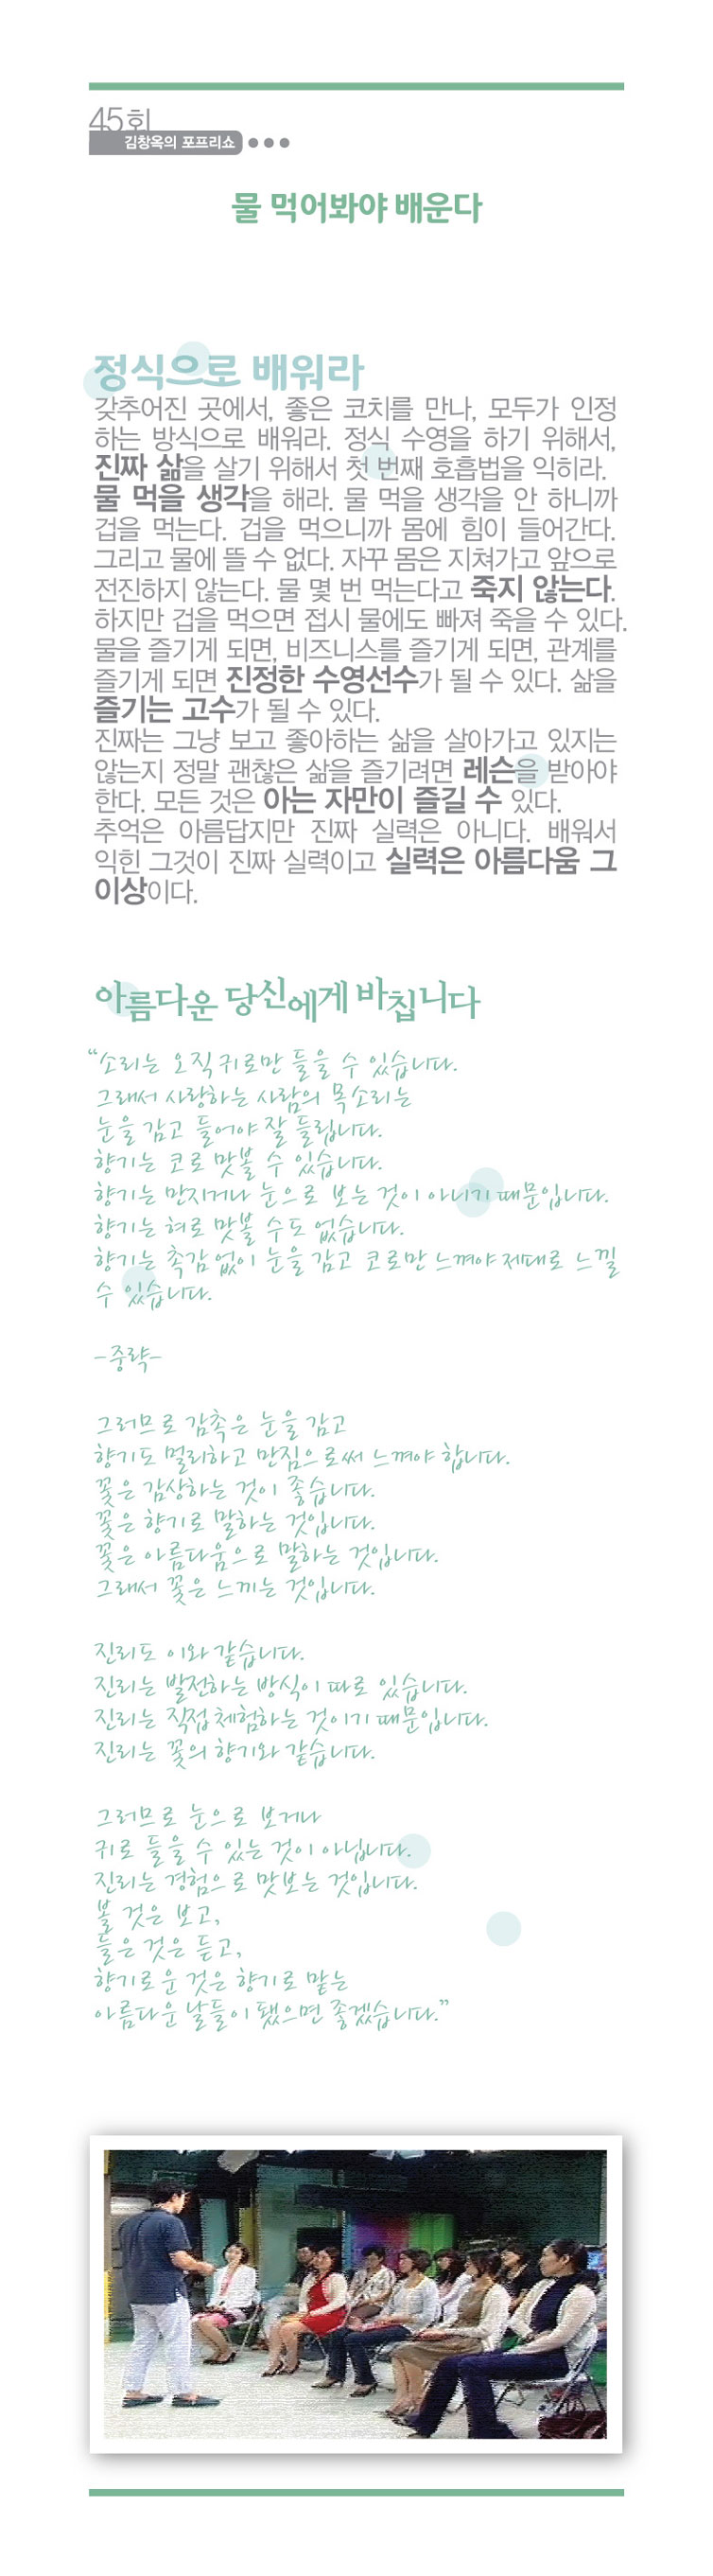 45회
김창옥의 포프리쇼
물 먹어봐야 배운다
정식으로 배워라
갖추어진 곳에서, 좋은 코치를 만나, 모두가 인정
하는 방식으로 배워라. 정식 수영을 하기 위해서,
진짜 삶을 살기 위해서 첫 번째 호흡법을 익히라.
물 먹을 생각을 해라. 물 먹을 생각을 안 하니까
겁을 먹는다. 겁을 먹으니까 몸에 힘이 들어간다.
그리고 물에 뜰 수 없다. 자꾸 몸은 지쳐가고 앞으로
전진하지 않는다. 물 몇 번 먹는다고 죽지 않는다.
하지만 겁을 먹으면 접시 물에도 빠져 죽을 수 있다.
물을 즐기게 되면, 비즈니스를 즐기게 되면, 관계를
즐기게 되면 진정한 수영선수가 될 수 있다. 삶을
즐기는 고수가 될 수 있다.
진짜는 그냥 보고 좋아하는 삶을 살아가고 있지는
않는지 정말 괜찮은 삶을 즐기려면 레슨을 받아야
한다. 모든 것은 아는 자만이 즐길 수 있다.
추억은 아름답지만 진짜 실력은 아니다. 배워서
익힌 그것이 진짜 실력이고 실력은 아름다움 그
이상이다.
아름다운 당신에게 바칩니다
“소리는 오직 귀로만 들을 수 있습니다.
그래서 사랑하는 사람의 목소리는
눈을 감고 들어야 잘 들립니다.
향기는 코로 맛볼 수 있습니다.
향기는 만지거나 눈으로 보는 것이 아니기 때문입니다.
향기는 혀로 맛볼 수도 없습니다.
향기는 촉감 없이 눈을 감고 코로만 느껴야 제대로 느낄
수 있습니다.
-중략-
그러므로 감촉은 눈을 감고
향기도 멀리하고 만짐으로써 느껴야 합니다.
꽃은 감상하는 것이 좋습니다.
꽃은 향기로 말하는 것입니다.
꽃은 아름다움으로 말하는 것입니다.
그래서 꽃은 느끼는 것입니다.
진리도 이와 같습니다.
진리는 발전하는 방식이 따로 있습니다.
진리는 직접 체험하는 것이기 때문입니다.
진리는 꽃의 향기와 같습니다.
그러므로 눈으로 보거나
귀로 들을 수 있는 것이 아닙니다.
진리는 경험으로 맛보는 것입니다.
볼 것은 보고,
들은 것은 듣고,
향기로운 것은 향기로 맡는
아름다운 날들이 됐으면 좋겠습니다.”